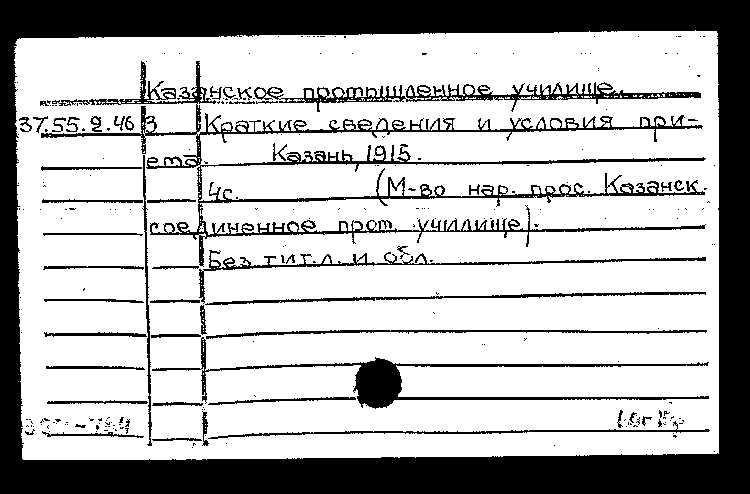 Казанское промышленное училище.
37.55.2.46 3 Краткие сведения и условия при-
ема. Казань, 1915.
4с. (М-во нар. прос. Казанск.
соединенное пром. училище).
Без тит.л. и обл.